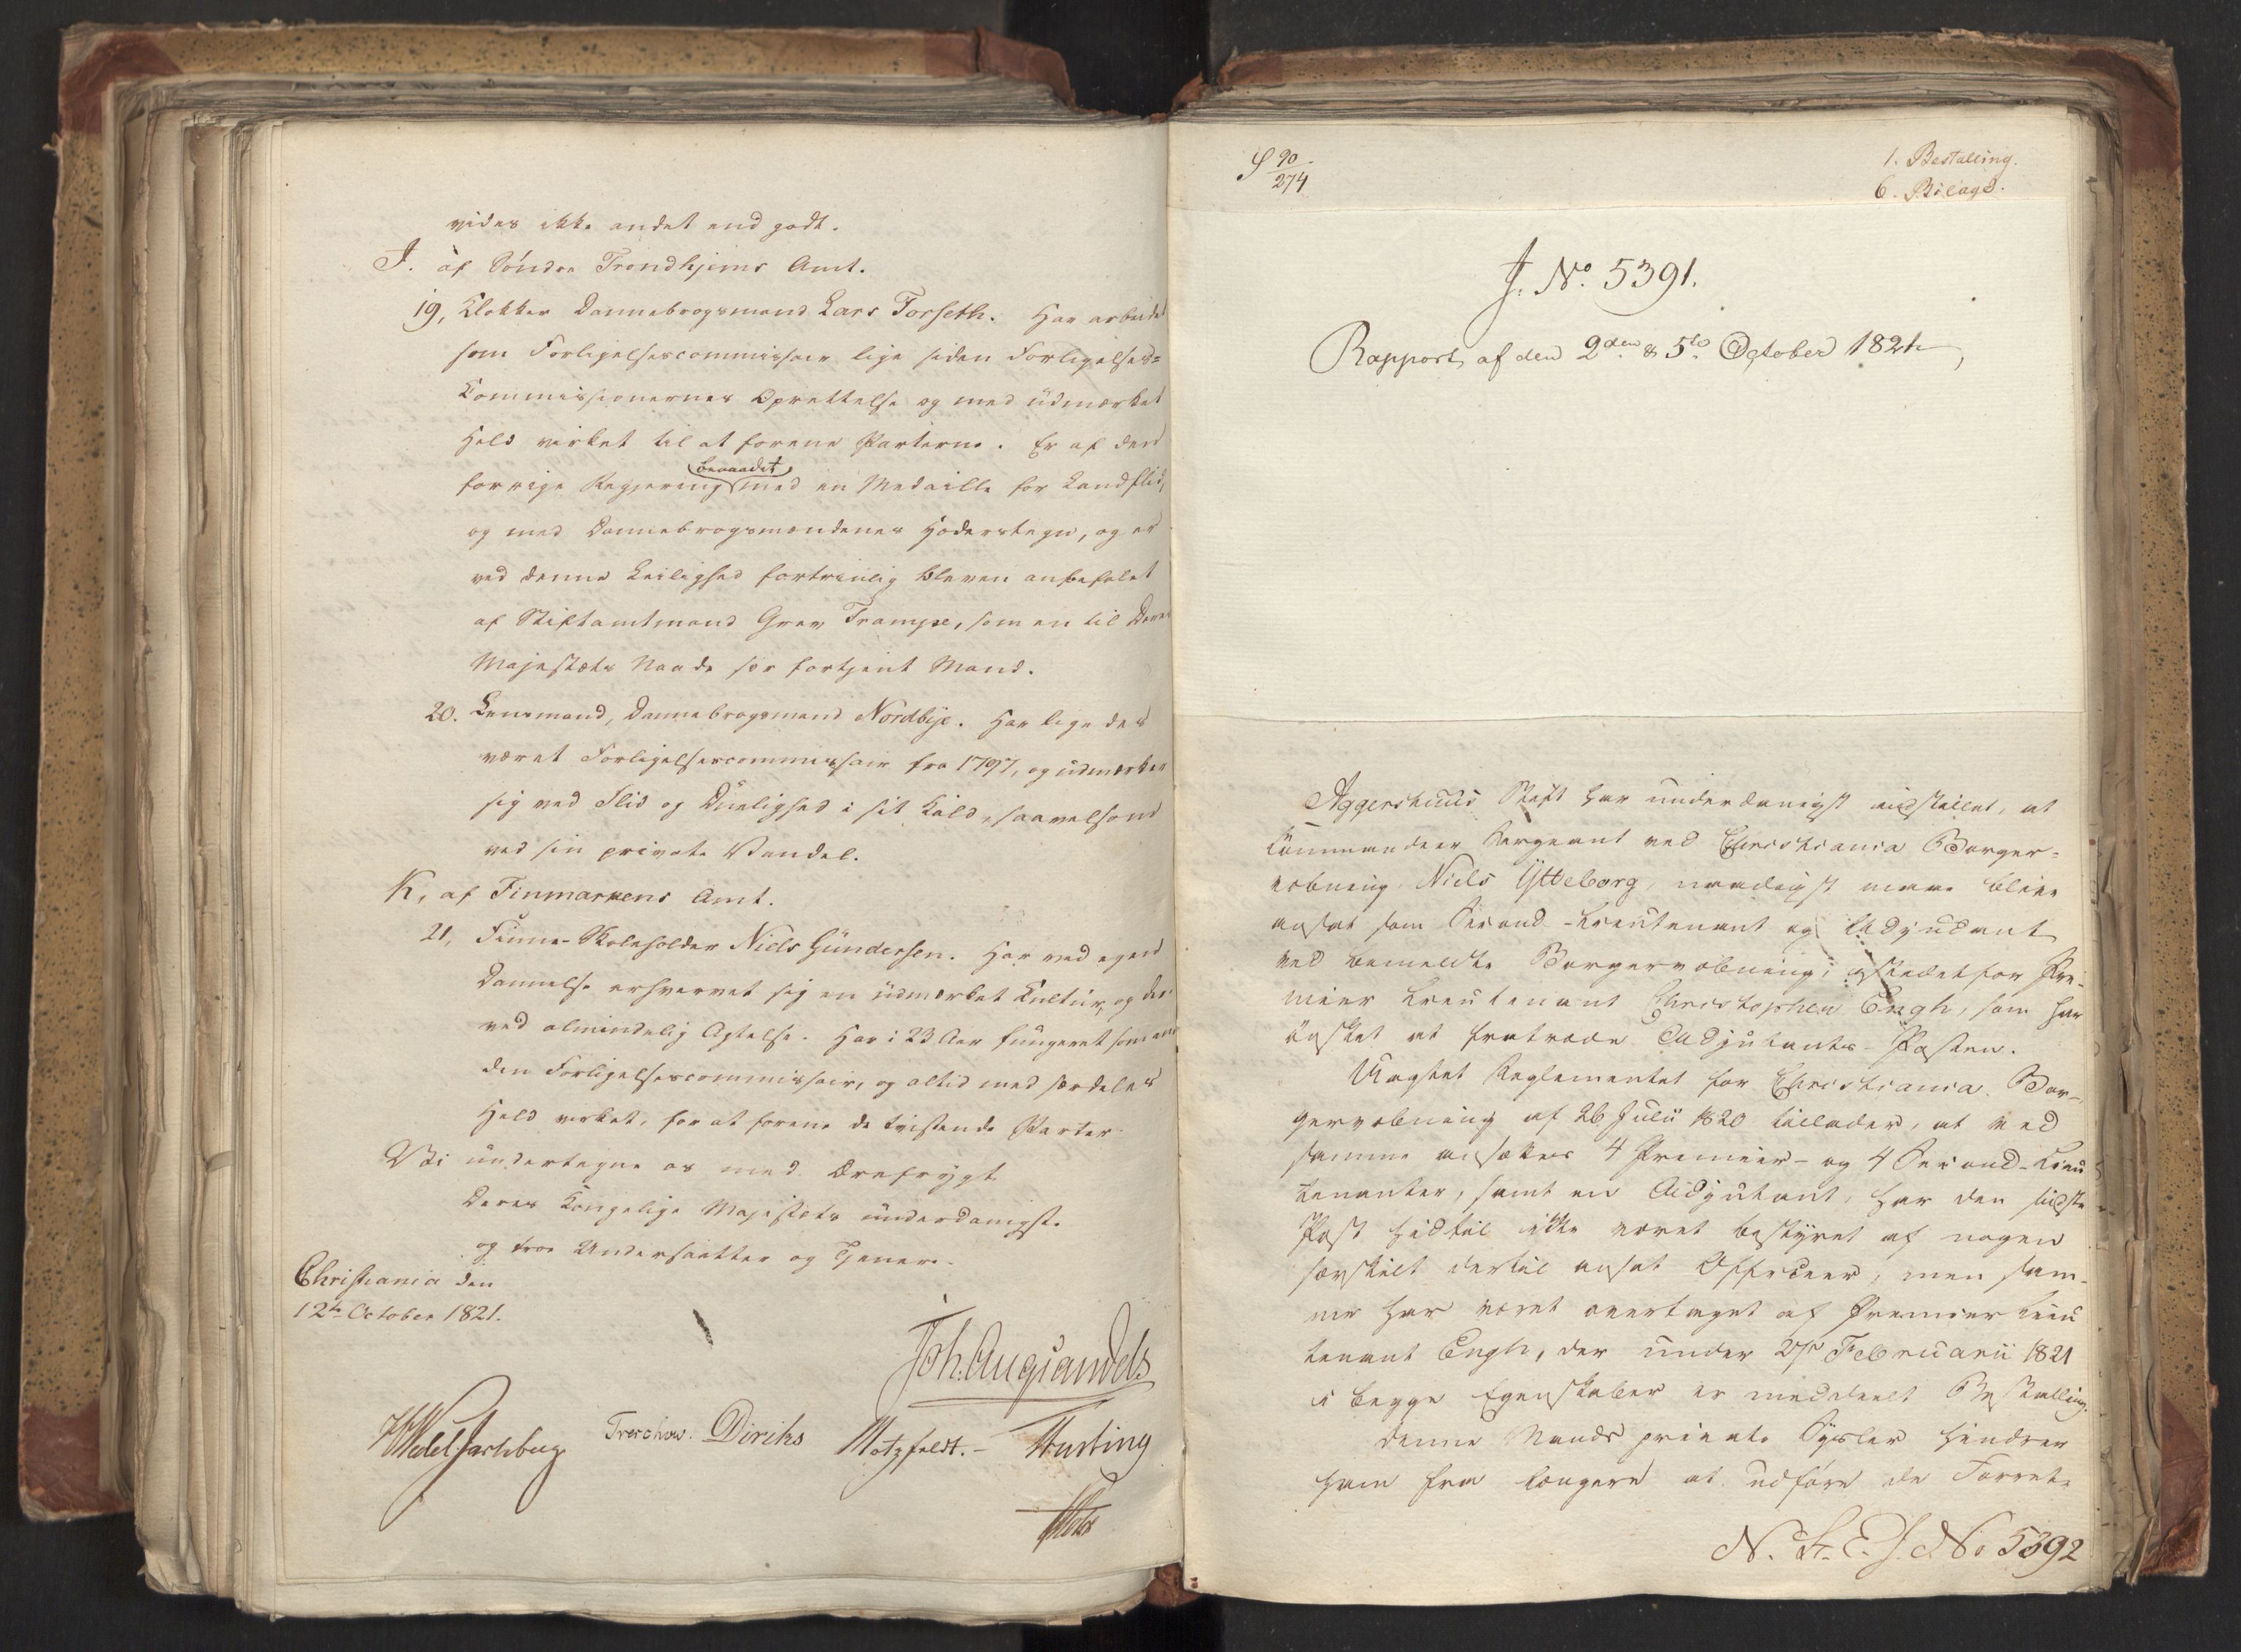 vides ikke andet end godt.
J. af Söndre Trondhjems Amt.
19, Klokker Dannebrogsmand Lars Forseth. Har arbeidet
som Forligelsescommissair lige siden Forligelses-
Kommissionernes Oprettelse og med udmærket
Held virket til at forene Parterne. Er af den
forrige Regjering benaadet med en Medaille for Landflid,
og med Dannebrogsmændenes Hæderstegn, og er
ved denne Leilighed fortrinlig bleven anbefalet
af Stiftamtmand Grev Trampe, som en til Deres
Majestæts Naade sær fortjent Mand.
20. Lensmand, Dannebrogsmand Nordbye. Har ligedes
været Forligelsescommissair fra 1797, og udmærket
sig ved Flid og Duelighed i sit Kald, saavelsom
ved sin private Vandel.
K, af Finmarkens Amt.
21, Finne-Skoleholder Niels Gundersen. Har ved egen
Dannelse erhvervet sig en udmærket Kultur, og der-
ved almindelig Agtelse. Har i 23 Aar fungeret som an-
den Forligelsescommissair, og altid med særdeles
Held virket, for at forene de tvistende Parter.
Vi undertegne os med Ærefrygt
Deres Kongelige Majestæts underdanigste
og troe Undersaatter og Tjenere.
Christiania den
12te October 1821.
Joh. Aug. Sandels
HWedel Jarlsberg Treschow. Diriks Motzfeldt. Fasting
S 90/274
1. Bestalling.
6. Bilage.
J. No. 5391.
Rapport af den 2den & 5te October 1821
Aggershuus Stift har underdanigst indstillet, at
Commandeer Sergeant ved Christiania Borger-
væbning Niels Ytteborg, naadigst maae blive
ansat som Second-Lieutenant og Adjudant
ved bemeldte Borgervæbning, istedetfor Pre-
mier Lieutenant Christopher Engh, som har
ønsket at fratræde Adjutants-Posten.
Uagtet Reglementet for Christiania Bor-
gervæbning af 26 Julii 1820 tillader, at ved
samme ansættes 4 Premier- og 4 Second-Lieu
tenanter, samt en Adjutant, har den sidste
Post hidtil ikke været bestyret af nogen
særskilt dertil ansat Officeer, men sam-
me har været overtaget af Premier Lieu
tenant Engh, der under 27 Februarii 1821
i begge Egenskaber er meddeelt Bestalling.
Denne Mands private Sysler hindrer
ham fra længere at udføre de Forret-
N. St. E. J. No 5392